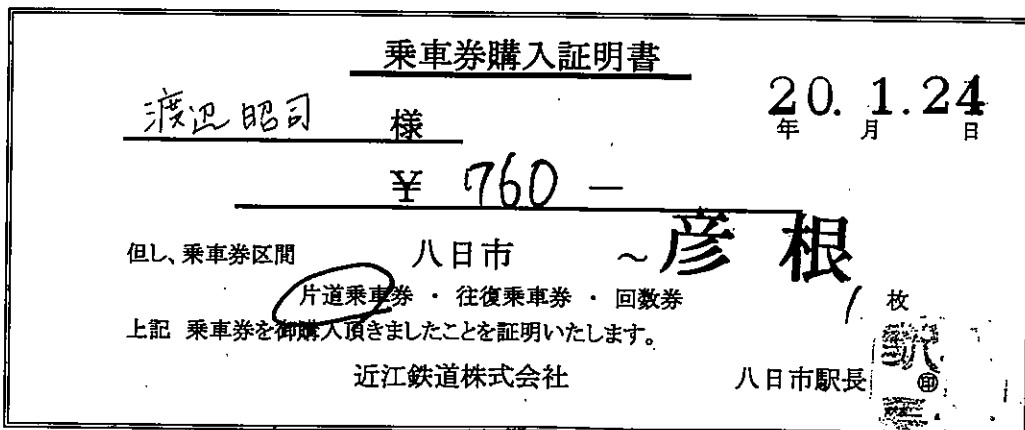 乗車券購入証明書
渡辺昭司 様
20. 1. 24
年 月 日
¥ 760 −
但し、乗車券区間 八日市 ~ 彦根
片道乗車券 ・ 往復乗車券 ・ 回数券 1 枚
上記 乗車券を御購入頂きましたことを証明いたします。
近江鉄道株式会社 八日市駅長 ㊞